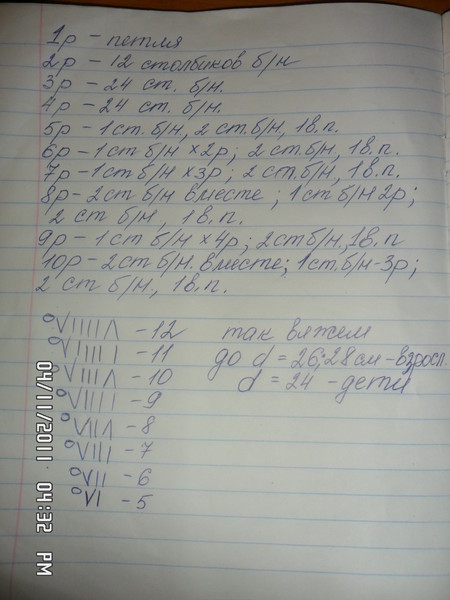 1р – петля
2р – 12 столбиков б/н
3р – 24 ст. б/н.
4р – 24 ст. б/н.
5р – 1 ст. б/н, 2 ст. б/н, 1в.п.
6р – 1 ст б/н x 2р; 2 ст. б/н, 1в.п.
7р – 1ст б/н x 3р; 2 ст. б/н, 1в.п.
8р – 2ст б/н вместе; 1ст б/н 2р;
2 ст б/н, 1в.п.
9р – 1ст б/н x 4р; 2ст б/н, 1в.п
10р – 2ст б/н. вместе; 1ст. б/н - 3р;
2 ст б/н, 1в.п.
– 12 так вяжем
– 11 до d = 26; 28 см – взросл.
– 10 d = 24 – дети
– 9
– 8
– 7
– 6
– 5
04/11/2011 04:32 PM